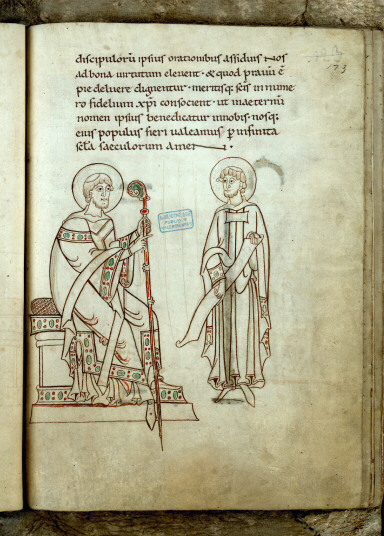 discipulorũ ipsius orationibus assiduis nos
ad bona uirtutum eleuent · & quod prauũ ẽ
pie deluere dignentur · meritisq; scis in nume
ro fidelium xp̃i consocient · ut in aeternũ
nomen ipsius benedicatur in nobis · nosq;
eius populus fieri ualeamus p̃ infinita
sc̃la saeculorum amen ·
73
BIBLIOTHÈQUE